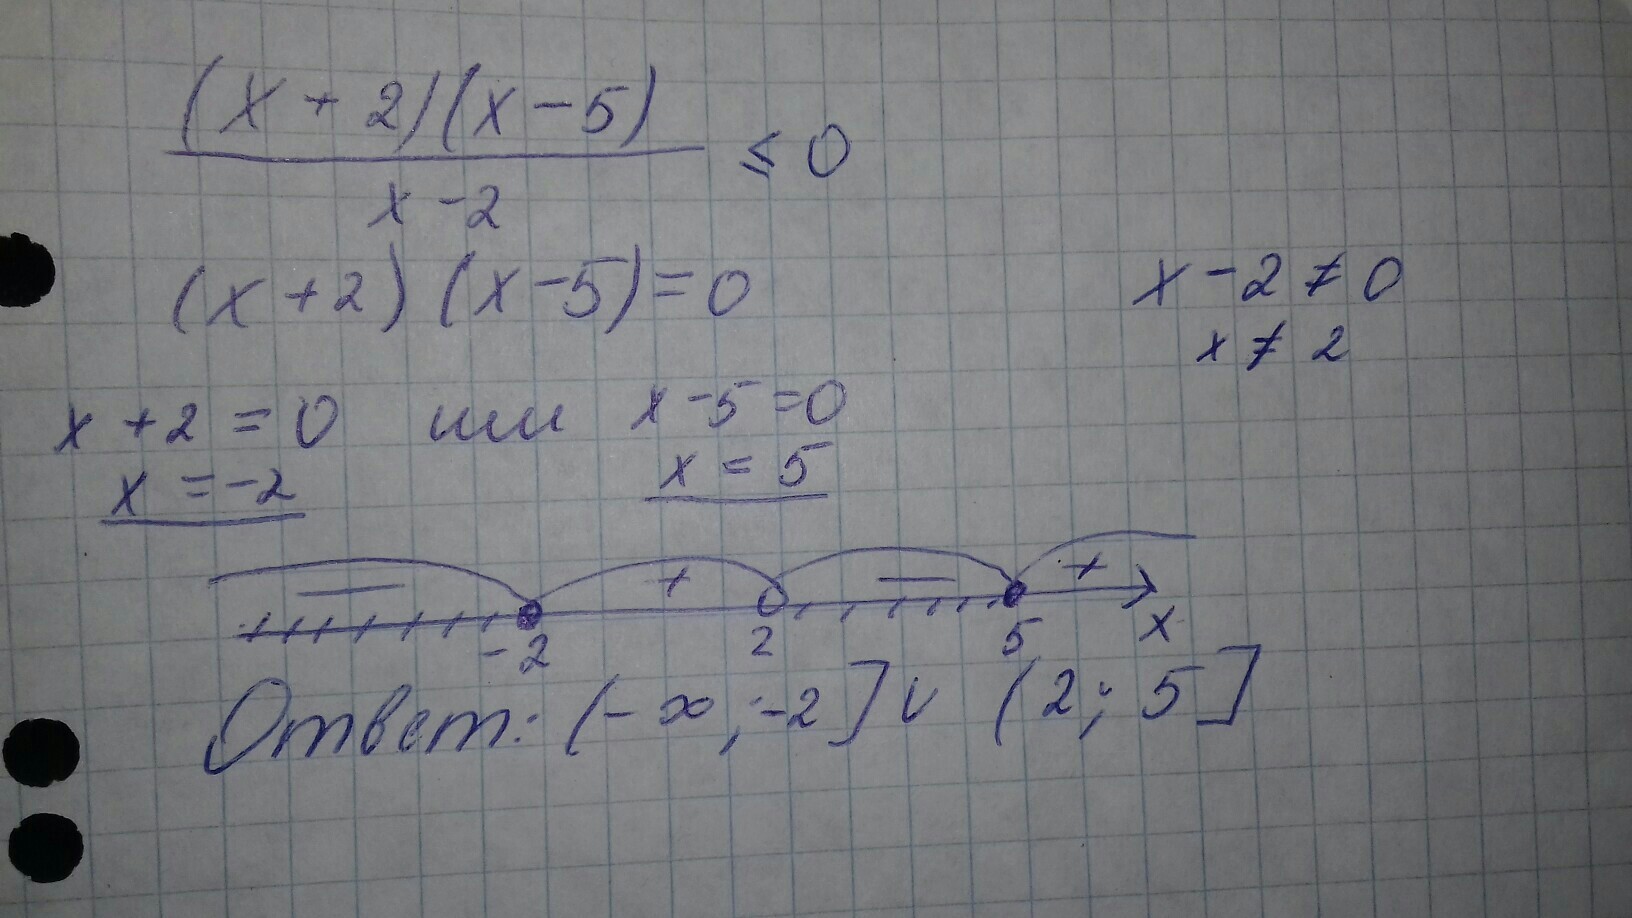 (x + 2)(x - 5)
x - 2
≤ 0
(x + 2) (x - 5) = 0
x - 2 ≠ 0
x ≠ 2
x + 2 = 0 или x - 5 = 0
x = -2
x = 5
— + — +
-2 2 5 x
Ответ: (-∞; -2] ∪ (2; 5]